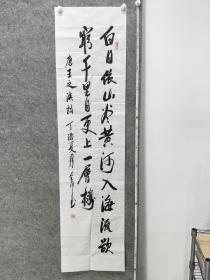 白日依山尽黄河入海流欲
窮千里目更上一層樓
唐王之渙詩 丁酉夏月